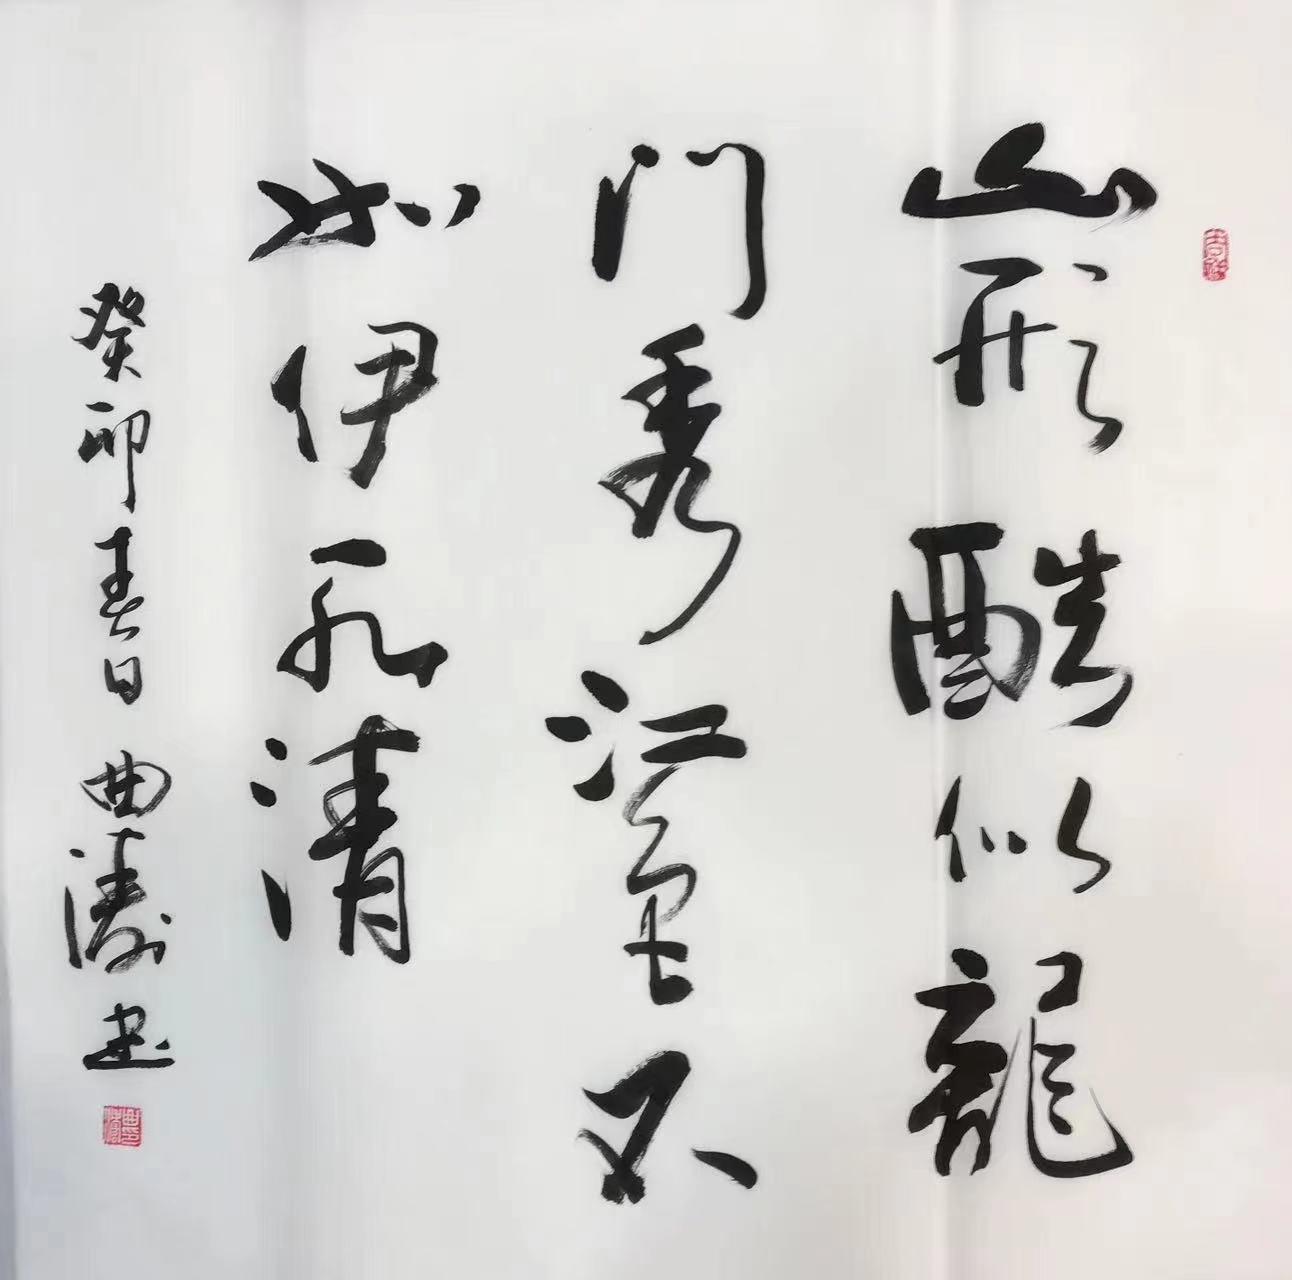 山形酷似龍
门秀江色不
如伊水清
癸卯春日 曲涛书